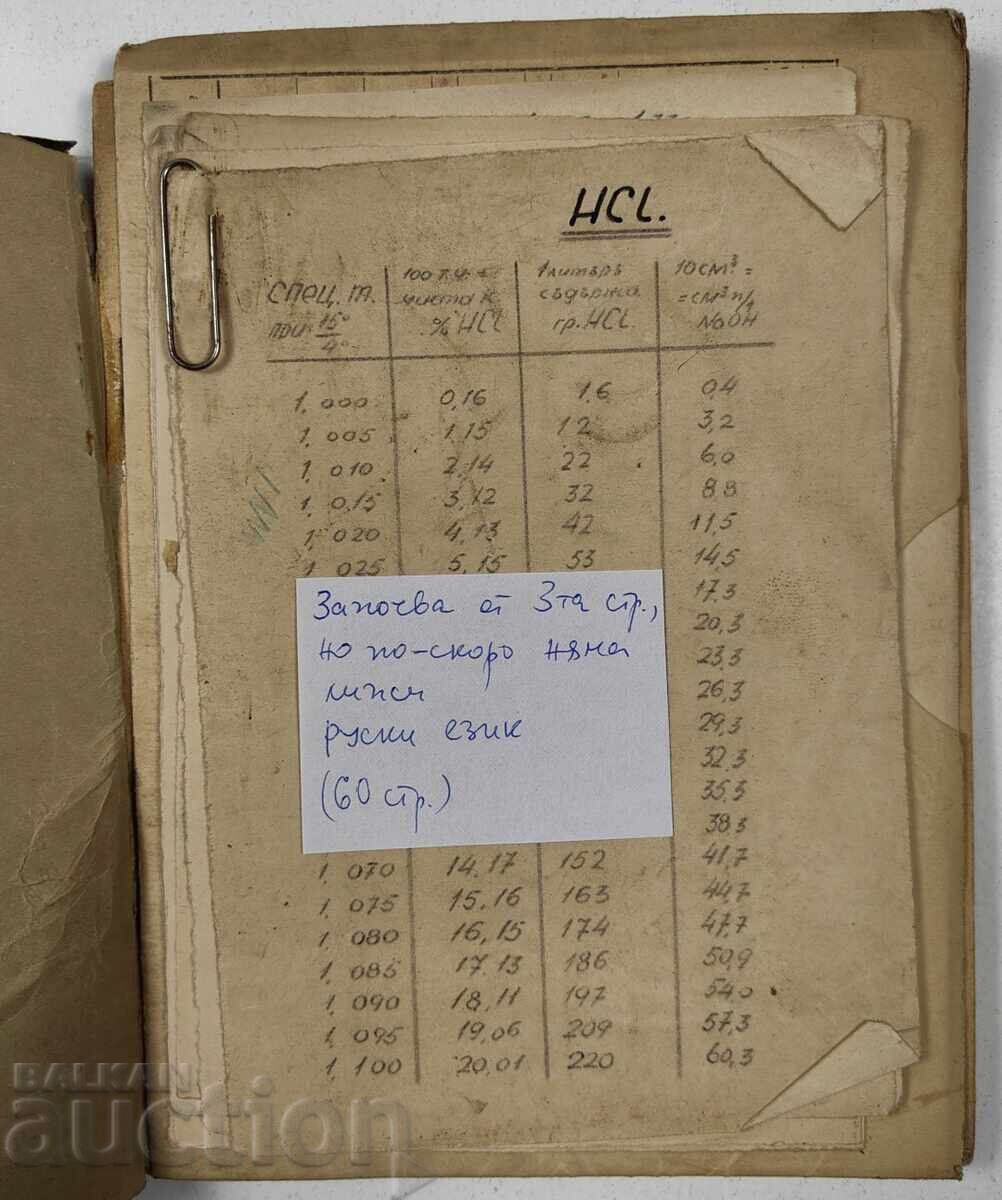 HCl.
СПЕЦ. Т. ПРИ 15°/4° | 100 т.ч. = чиста к. % HCl | 1 литъръ съдържа гр. HCl | 10 см³ = см³ n/1 NaOH
1,000 0,16 1,6 0,4
1,005 1,15 12 3,2
1,010 2,14 22 6,0
1,015 3,12 32 8,8
1,020 4,13 42 11,5
1,025 5,15 53 14,5
17,3
20,3
23,3
26,3
29,3
32,3
35,3
38,3
Започва от 3та стр.,
но по-скоро няма
липси
руски език
(60 стр.)
1,070 14,17 152 41,7
1,075 15,16 163 44,7
1,080 16,15 174 47,7
1,085 17,13 186 50,9
1,090 18,11 197 54,0
1,095 19,06 209 57,3
1,100 20,01 220 60,3
BALKAN
auction